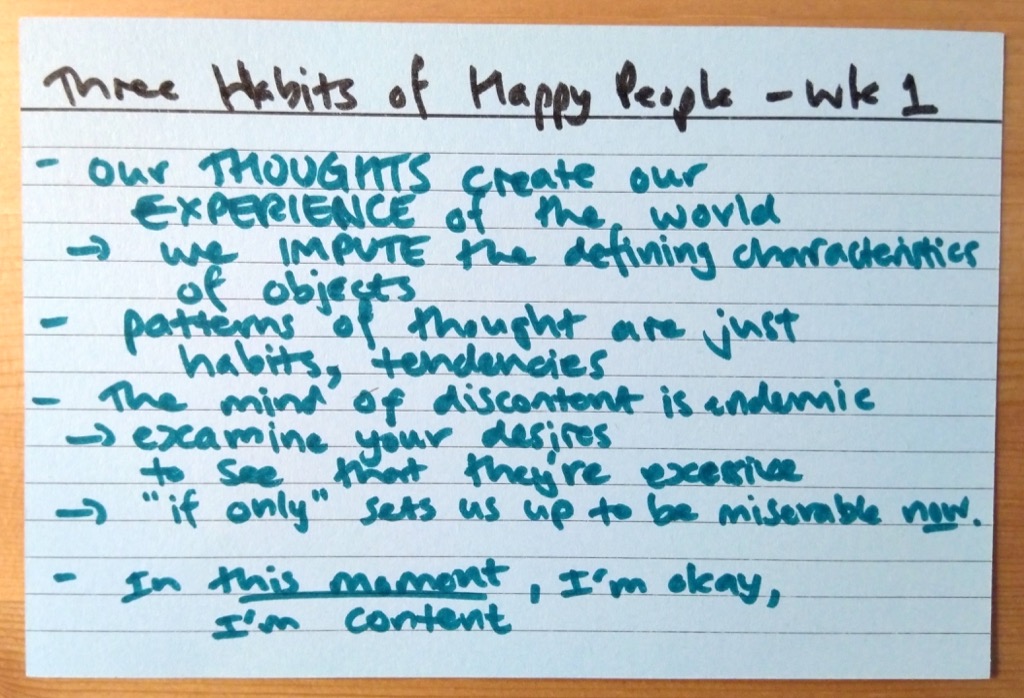 Three Habits of Happy People - wk 1
- our THOUGHTS create our
EXPERIENCE of the world
→ we IMPUTE the defining characteristics
of objects
- patterns of thought are just
habits, tendencies
- The mind of discontent is endemic
→ examine your desires
to see that they're excessive
→ "if only" sets us up to be miserable now.
- In this moment, I'm okay,
I'm content